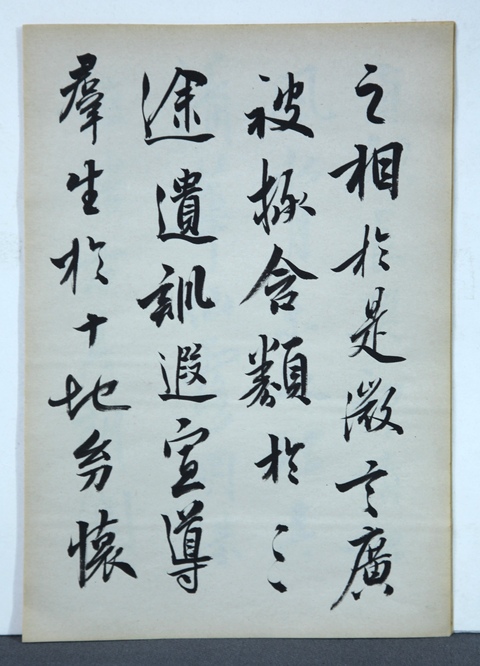 之相於是微言廣
被拯含類於三
途遺訓遐宣導
羣生於十地懷